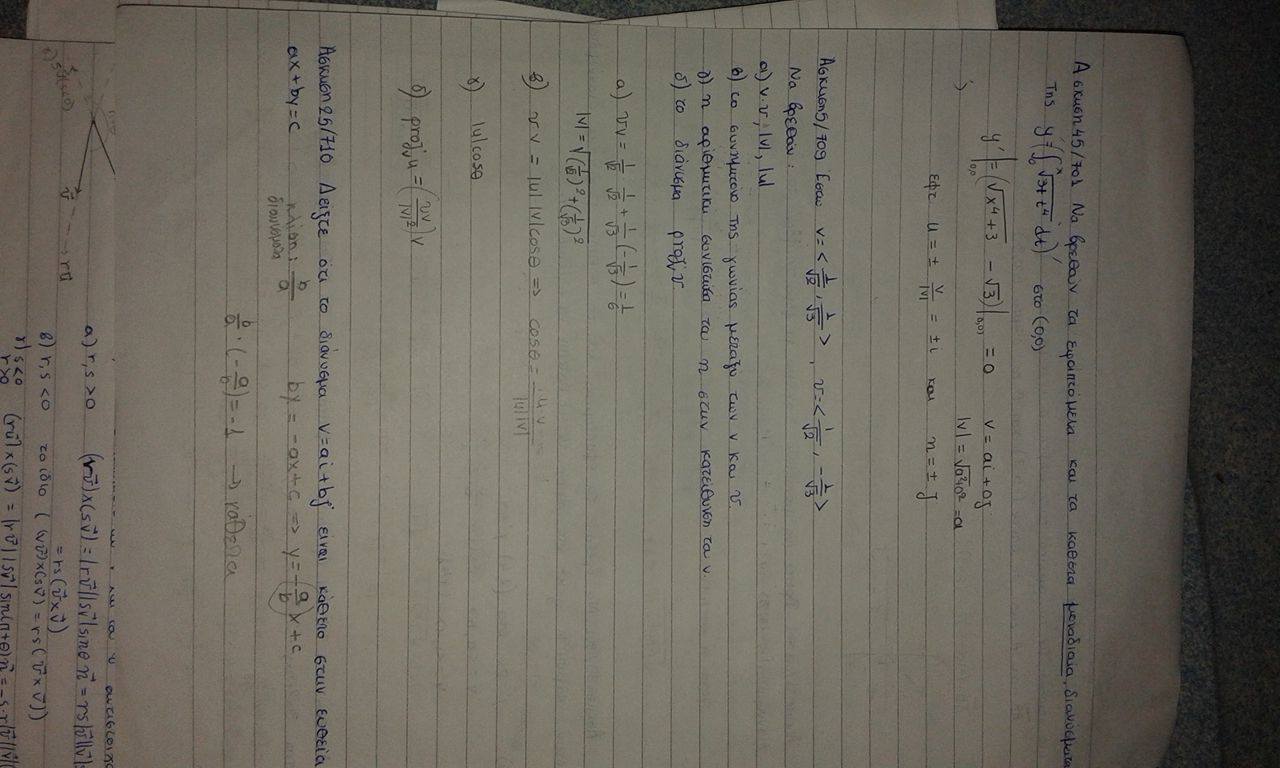 Άσκηση 45/701 Να βρεθούν τα εφαπτόμενα και τα κάθετα μοναδιαία διανύσματα
της y'=(∫₀ˣ √3+t⁴ dt)' στο (0,0)
y'|₀,₀ = (√x⁴+3 - √3)|₀,₀ = 0 v = ai + 0j
|v| = √a²+0² = a
εφτ u = ± v/|v| = ± i και n = ± j
Άσκηση 5/709 Έστω v = <1/√2, 1/√3>, u = <1/√2, -1/√3>
Να βρεθούν:
α) v·u, |v|, |u|
β) το συνημίτονο της γωνίας μεταξύ των v και u
γ) η αριθμητική συνιστώσα του u στην κατεύθυνση του v
δ) το διάνυσμα projᵥu
α) uv = 1/√2 1/√2 + 1/√3 (-1/√3) = 1/6
|v| = √(1/√2)² + (1/√3)²
β) u v = |u| |v| cosθ => cosθ = u v / |u||v|
γ) |u| cosθ
δ) projᵥu = (uv/|v|²) v
Άσκηση 25/710 Δείξτε ότι το διάνυσμα v = ai + bj είναι κάθετο στην ευθεία
ax + by = c κλίση: b/a by = -ax + c => y = -a/b x + c
διανυσμα
b/a · (-a/b) = -1 → κάθετα
α) r, s > 0 (ru⃗) x (sv⃗) = |ru⃗| |sv⃗| sinθ n⃗ = rs|u⃗||v⃗|
= rs (u⃗ x v⃗)
β) r, s < 0 το ίδιο ( (ru⃗) x (sv⃗) = rs ( u⃗ x v⃗ ))
γ) s < 0 (ru⃗) x (sv⃗) = |ru⃗| |sv⃗| sin(π+θ) n⃗ = -s·r|u⃗||v⃗|
r > 0
v⃗
ru⃗